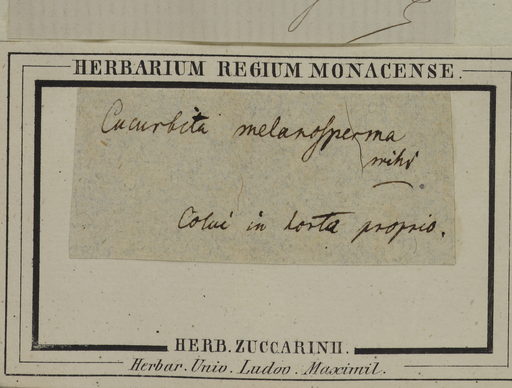 HERBARIUM REGIUM MONACENSE.
Cucurbita melanosperma
mihi
Colui in horto proprio.
HERB. ZUCCARINII.
Herbar. Univ. Ludov. Maximil.